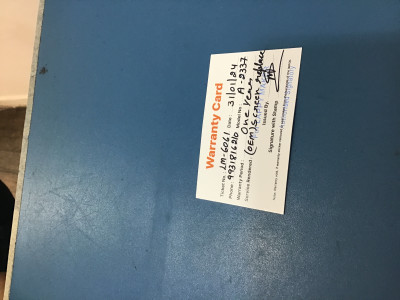 Warranty Card
Ticket No.: LM-6061 Date: 31/01/24
Phone: 9931816210 Model No.: A-2337
Warranty Period: One Year
Service Rendered: (OEM) Screen replace
Issued By:
Signature with Stamp